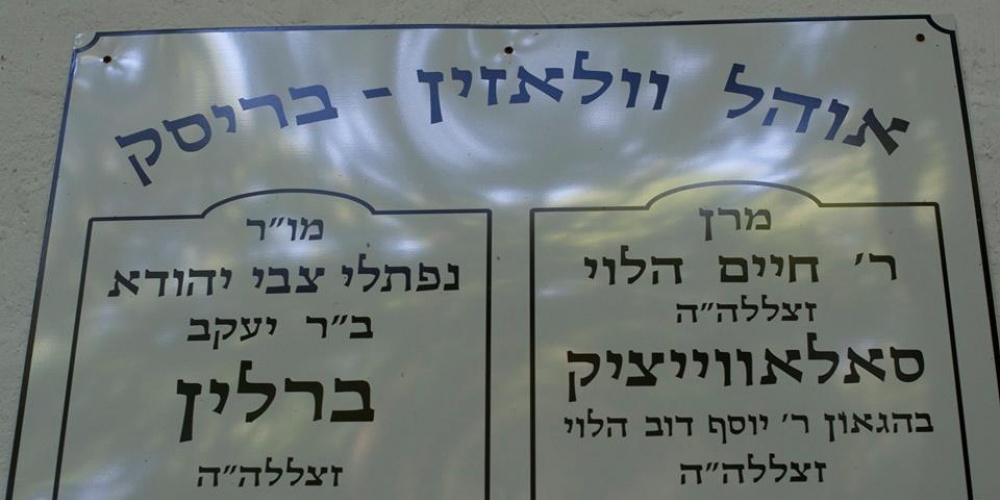 אוהל וולאזין - בריסק
מרן
ר׳ חיים הלוי
זצללה״ה
סאלאווייציק
בהגאון ר׳ יוסף דוב הלוי
זצללה״ה
מו״ר
נפתלי צבי יהודא
ב״ר יעקב
ברלין
זצללה״ה